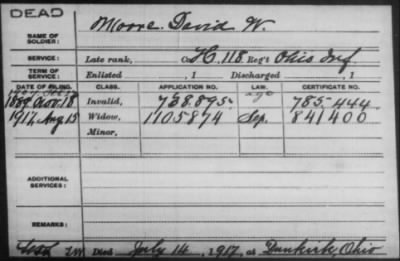 DEAD
NAME OF SOLDIER: Moore, David W.
SERVICE: Late rank, Co. H, 118 Reg't Ohio Inf
TERM OF SERVICE: Enlisted , 1 Discharged , 1
DATE OF FILING. CLASS. APPLICATION NO. LAW. CERTIFICATE NO.
1889 Nov. 18 Invalid, 738.895 age 785.444
1917. Aug 15 Widow, 1105874 Sep. 841400
Minor,
ADDITIONAL SERVICES:
REMARKS:
Died July 14, 1917, at Dunkirk, Ohio